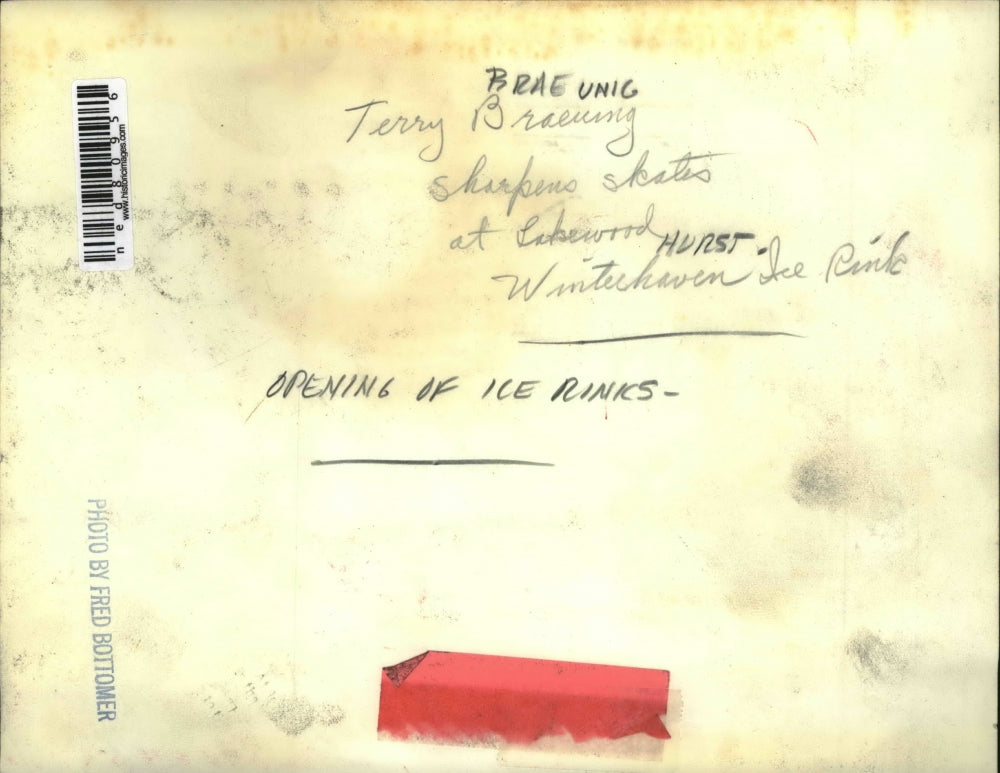 BRAEUNIG
Terry Braeunig
sharpens skates
at Lakewood
HURST.
Winterhaven Ice Rink
OPENING OF ICE RINKS-
PHOTO BY FRED BOTTOMER
www.historicimages.com
ned80956